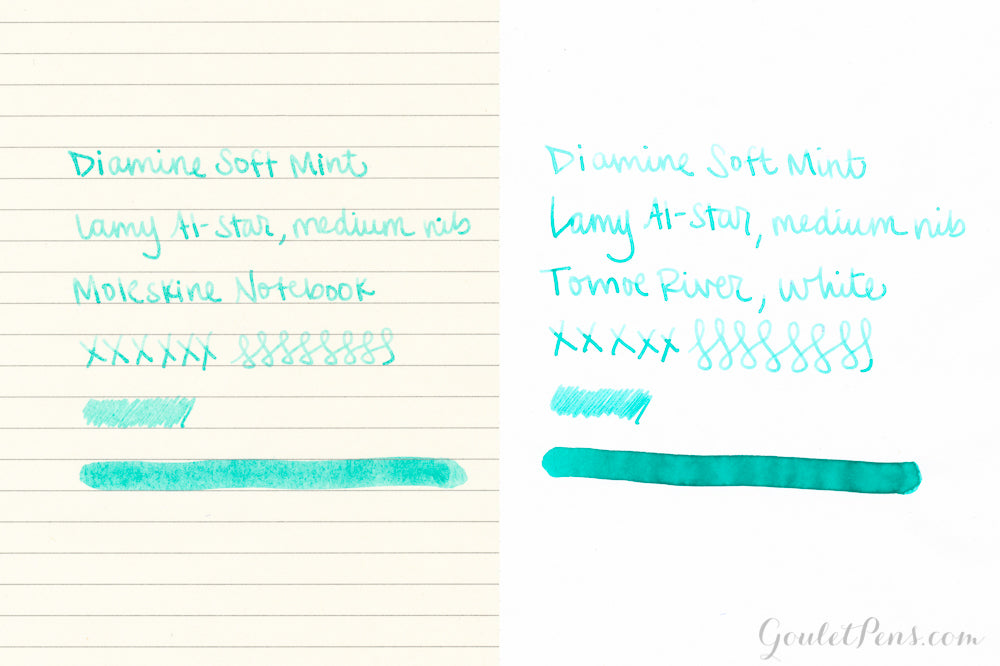 Diamine Soft Mint
Lamy Al-Star, medium nib
Moleskine Notebook
xxxxxx
Diamine Soft Mint
Lamy Al-Star, medium nib
Tomoe River, white
xxxxx
GouletPens.com